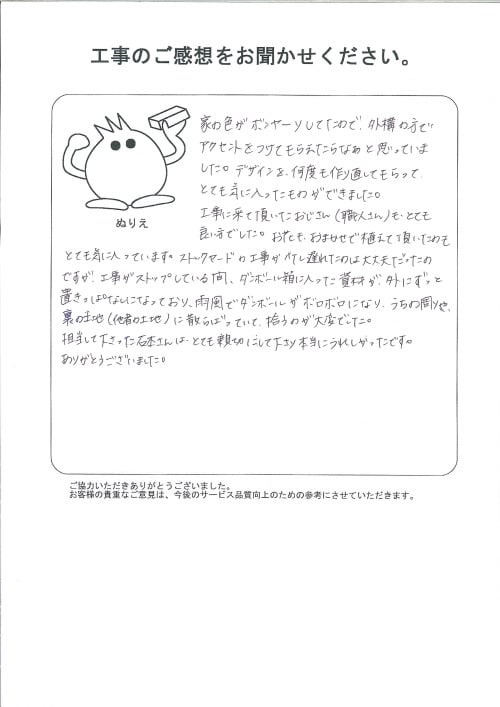 工事のご感想をお聞かせください。
ぬりえ
家の色がボンヤーリしてたので、外構の方で
アクセントをつけてもらえたらなぁと思っていま
した。デザインを、何度も作り直してもらって、
とても気に入ったものができました。
工事に来て頂いたおじさん(職人さん)も、とても
良い方でした。お花も、おまかせで植えて頂いたのも
とても気に入っています。ストックヤードの工事が 遅れたのは大丈夫だったの
ですが、工事がストップしている間、ダンボール箱に入った資材が、外にずっと
置きっぱなしになっており、雨風でダンボールがボロボロになり、うちの周りや、
裏の土地(他者の土地)に散らばっていて、拾うのが大変でした。
担当して下さった石本さんは、とても親切にして下さり本当にうれしかったです。
ありがとうございました。
ご協力いただきありがとうございました。
お客様の貴重なご意見は、今後のサービス品質向上のための参考にさせていただきます。